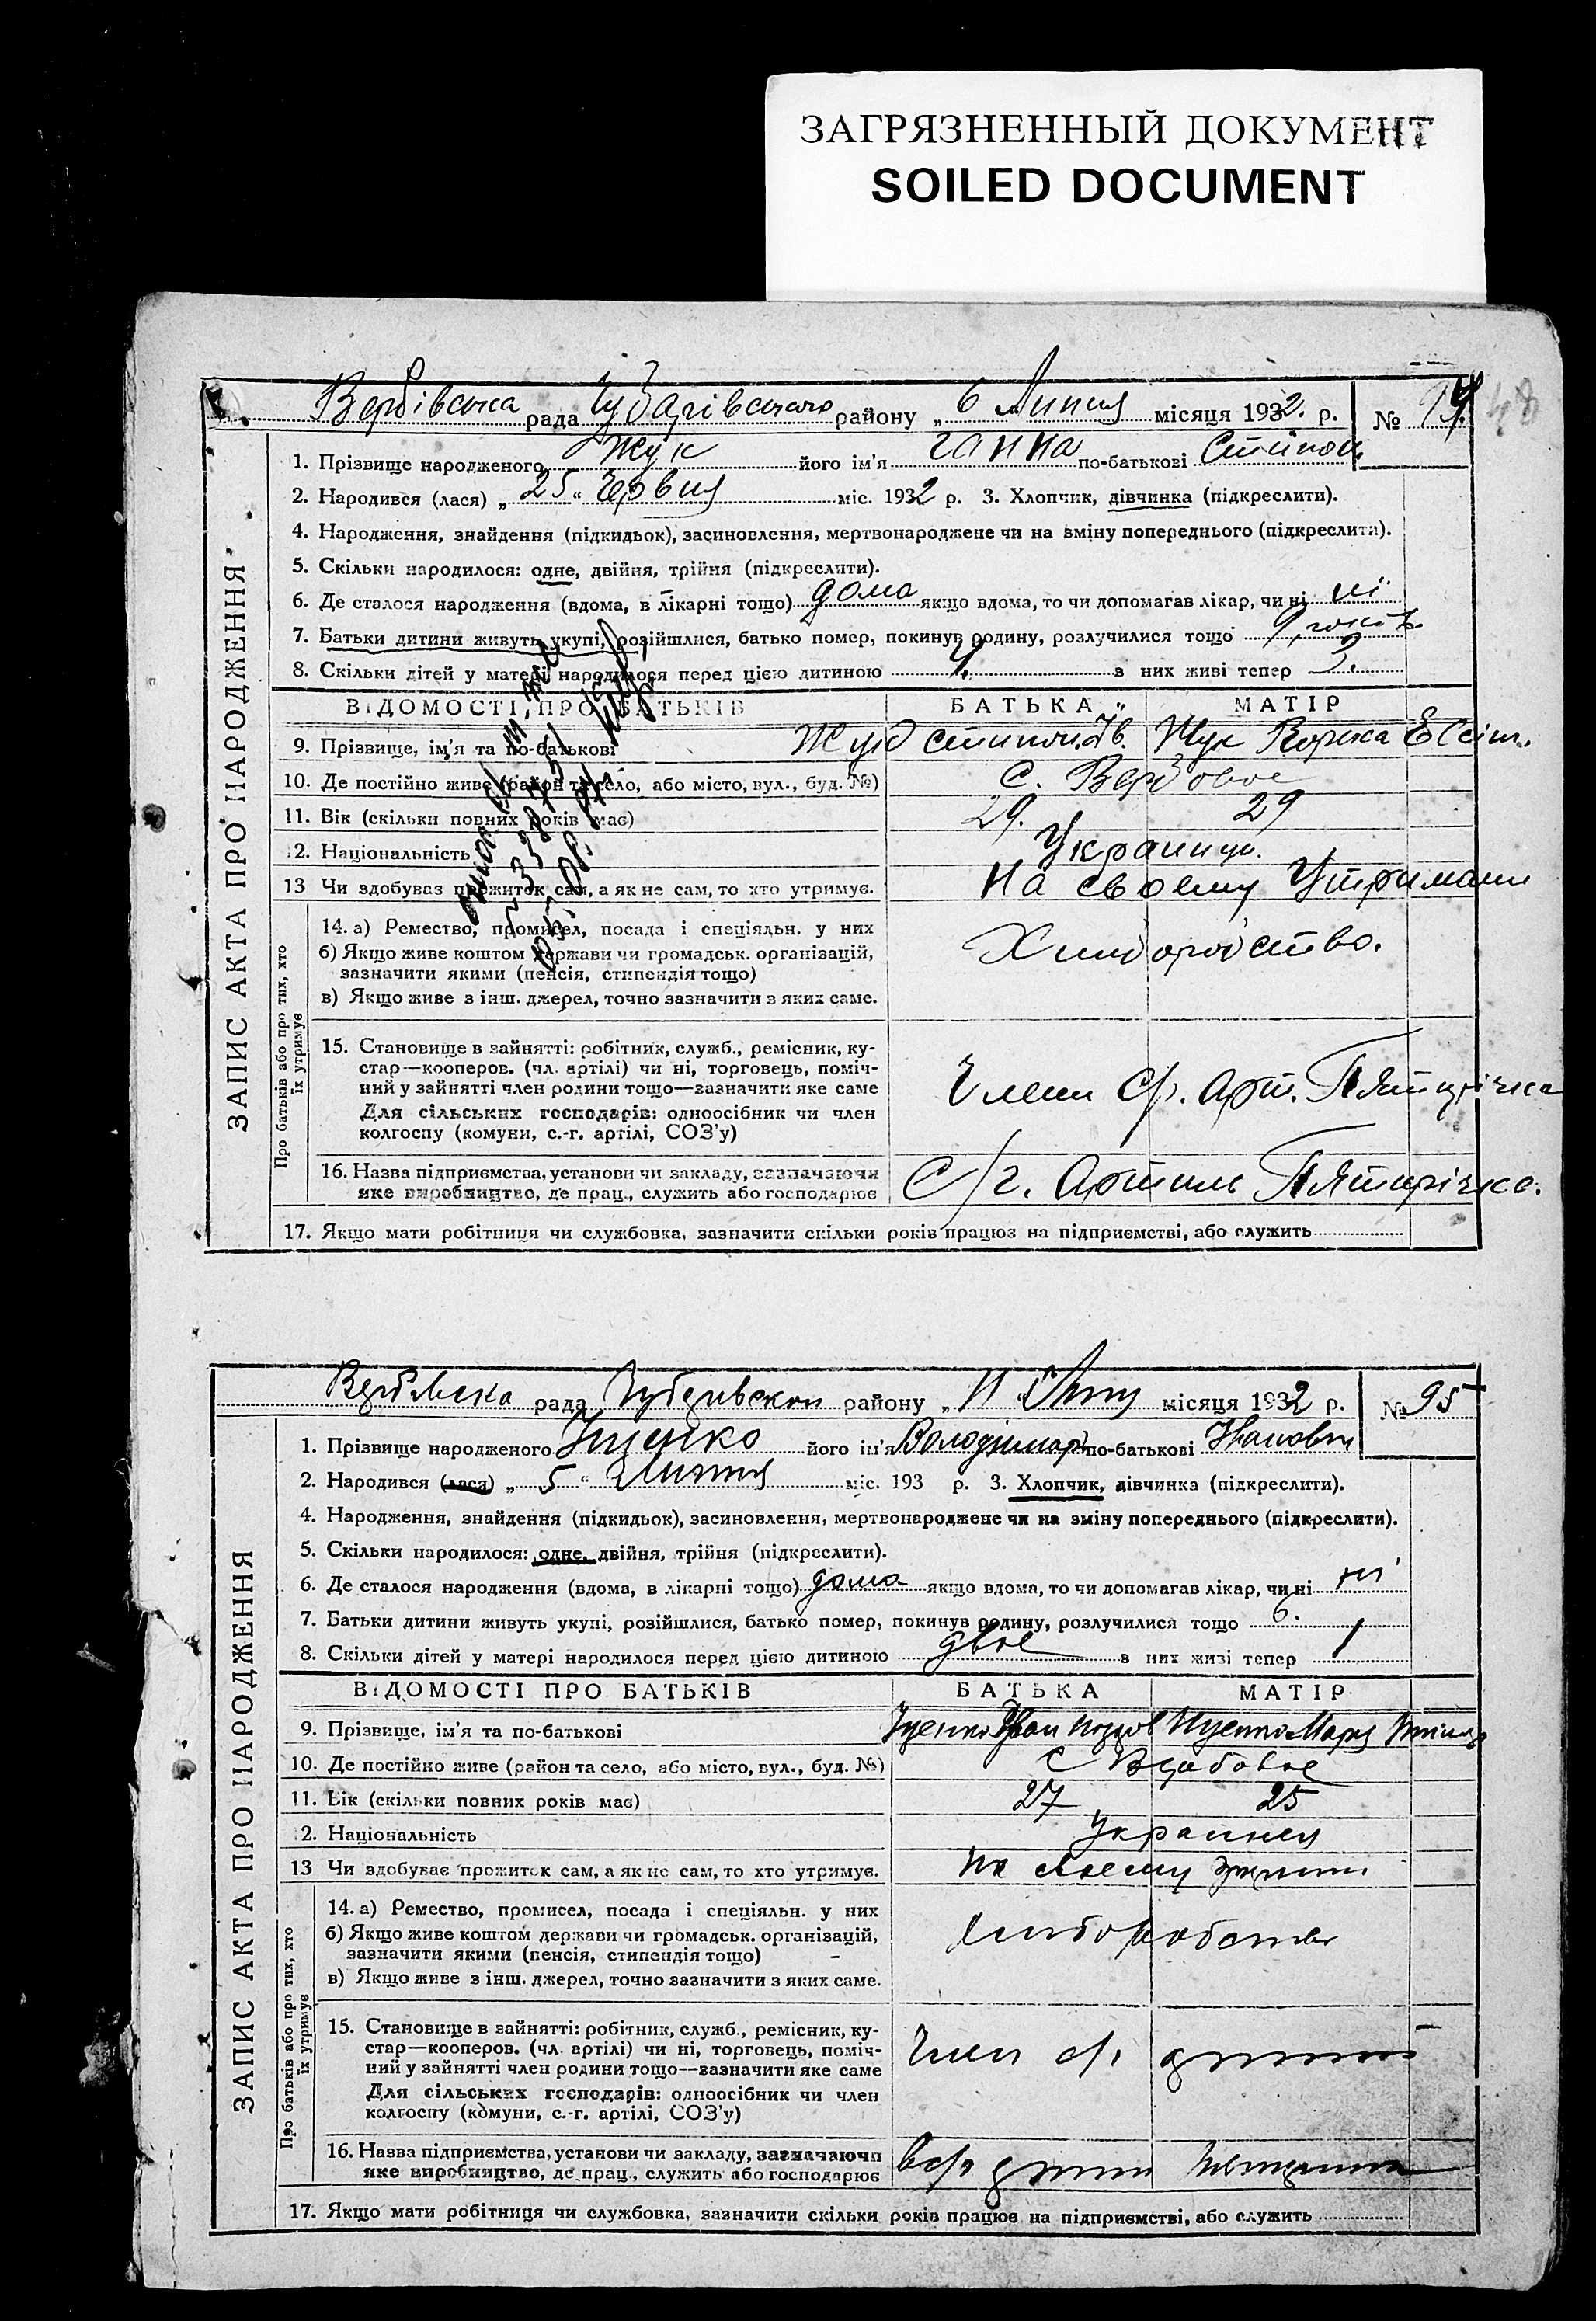 ЗАГРЯЗНЕННЫЙ ДОКУМЕНТ
SOILED DOCUMENT
48
Вербівська рада Чубарівського району „ 6 Липня місяця 1932 р. № 94
ЗАПИС АКТА ПРО НАРОДЖЕННЯ
1. Прізвище народженого Жук його ім'я Ганна по-батькові Степан
2. Народився (лася) „ 25 “ Червня міс. 1932 р. 3. Хлопчик, дівчинка (підкреслити).
4. Народження, знайдення (підкидьок), засиновлення, мертвонароджене чи на зміну попереднього (підкреслити).
5. Скільки народилося: одне, двійня, трійня (підкреслити).
6. Де сталося народження (вдома, в лікарні тощо) дома якщо вдома, то чи допомагав лікар, чи ні ні
7. Батьки дитини живуть укупі, розійшлися, батько помер, покинув родину, розлучилися тощо 9 років
8. Скільки дітей у матері народилося перед цією дитиною 4. з них живі тепер 3.
ВІДОМОСТІ ПРО БАТЬКІВ БАТЬКА МАТІР
9. Прізвище, ім'я та по-батькові Жук Степан Ів. Жук
10. Де постійно живе (район та село, або місто, вул., буд. №) С. Вербовое
11. Вік (скільки повних років має) 29. 29
12. Національність Украинци.
13 Чи здобуває прожиток сам, а як не сам, то хто утримує. На своему Утримани
Про батьків або про тих, хто їх утримує
14. а) Ремество, промисел, посада і спеціяльн. у них Хлиборобство.
б) Якщо живе коштом держави чи громадськ. організацій,
зазначити якими (пенсія, стипендія тощо)
в) Якщо живе з інш. джерел, точно зазначити з яких саме.
15. Становище в зайнятті: робітник, служб., ремісник, ку-
стар—кооперов. (чл. артілі) чи ні, торговець, поміч-
ний у зайнятті член родини тощо—зазначити яке саме
Для сільських господарів: одноосібник чи член
колгоспу (комуни, с.-г. артілі, СОЗ'у)
Члени С/г. Арт. Пятирічка
16. Назва підприємства, установи чи закладу, зазначаючи
яке виробництво, де прац., служить або господарює
С/г. Артиль Пятирічка.
17. Якщо мати робітниця чи службовка, зазначити скільки років працює на підприємстві, або служить
Вербівська рада Чубарівської району „ 11 “ Липня місяця 1932 р. № 95
ЗАПИС АКТА ПРО НАРОДЖЕННЯ
1. Прізвище народженого Іщенко його ім'я Володимир по-батькові Іванович
2. Народився (лася) „ 5 “ Липня міс. 193 р. 3. Хлопчик, дівчинка (підкреслити).
4. Народження, знайдення (підкидьок), засиновлення, мертвонароджене чи на зміну попереднього (підкреслити).
5. Скільки народилося: одне, двійня, трійня (підкреслити).
6. Де сталося народження (вдома, в лікарні тощо) дома якщо вдома, то чи допомагав лікар, чи ні ні
7. Батьки дитини живуть укупі, розійшлися, батько помер, покинув родину, розлучилися тощо 6.
8. Скільки дітей у матері народилося перед цією дитиною двое з них живі тепер 1
ВІДОМОСТІ ПРО БАТЬКІВ БАТЬКА МАТІР
9. Прізвище, ім'я та по-батькові Іщенко Іван Іщенко Мария
10. Де постійно живе (район та село, або місто, вул., буд. №) С Вербовое
11. Вік (скільки повних років має) 27 25
12. Національність Украинец
13 Чи здобуває прожиток сам, а як не сам, то хто утримує. На своему
Про батьків або про тих, хто їх утримує
14. а) Ремество, промисел, посада і спеціяльн. у них хлиборобство
б) Якщо живе коштом держави чи громадськ. організацій,
зазначити якими (пенсія, стипендія тощо)
в) Якщо живе з інш. джерел, точно зазначити з яких саме.
15. Становище в зайнятті: робітник, служб., ремісник, ку-
стар—кооперов. (чл. артілі) чи ні, торговець, поміч-
ний у зайнятті член родини тощо—зазначити яке саме
Для сільських господарів: одноосібник чи член
колгоспу (комуни, с.-г. артілі, СОЗ'у)
Член с/г
16. Назва підприємства, установи чи закладу, зазначаючи
яке виробництво, де прац., служить або господарює
17. Якщо мати робітниця чи службовка, зазначити скільки років працює на підприємстві, або служить